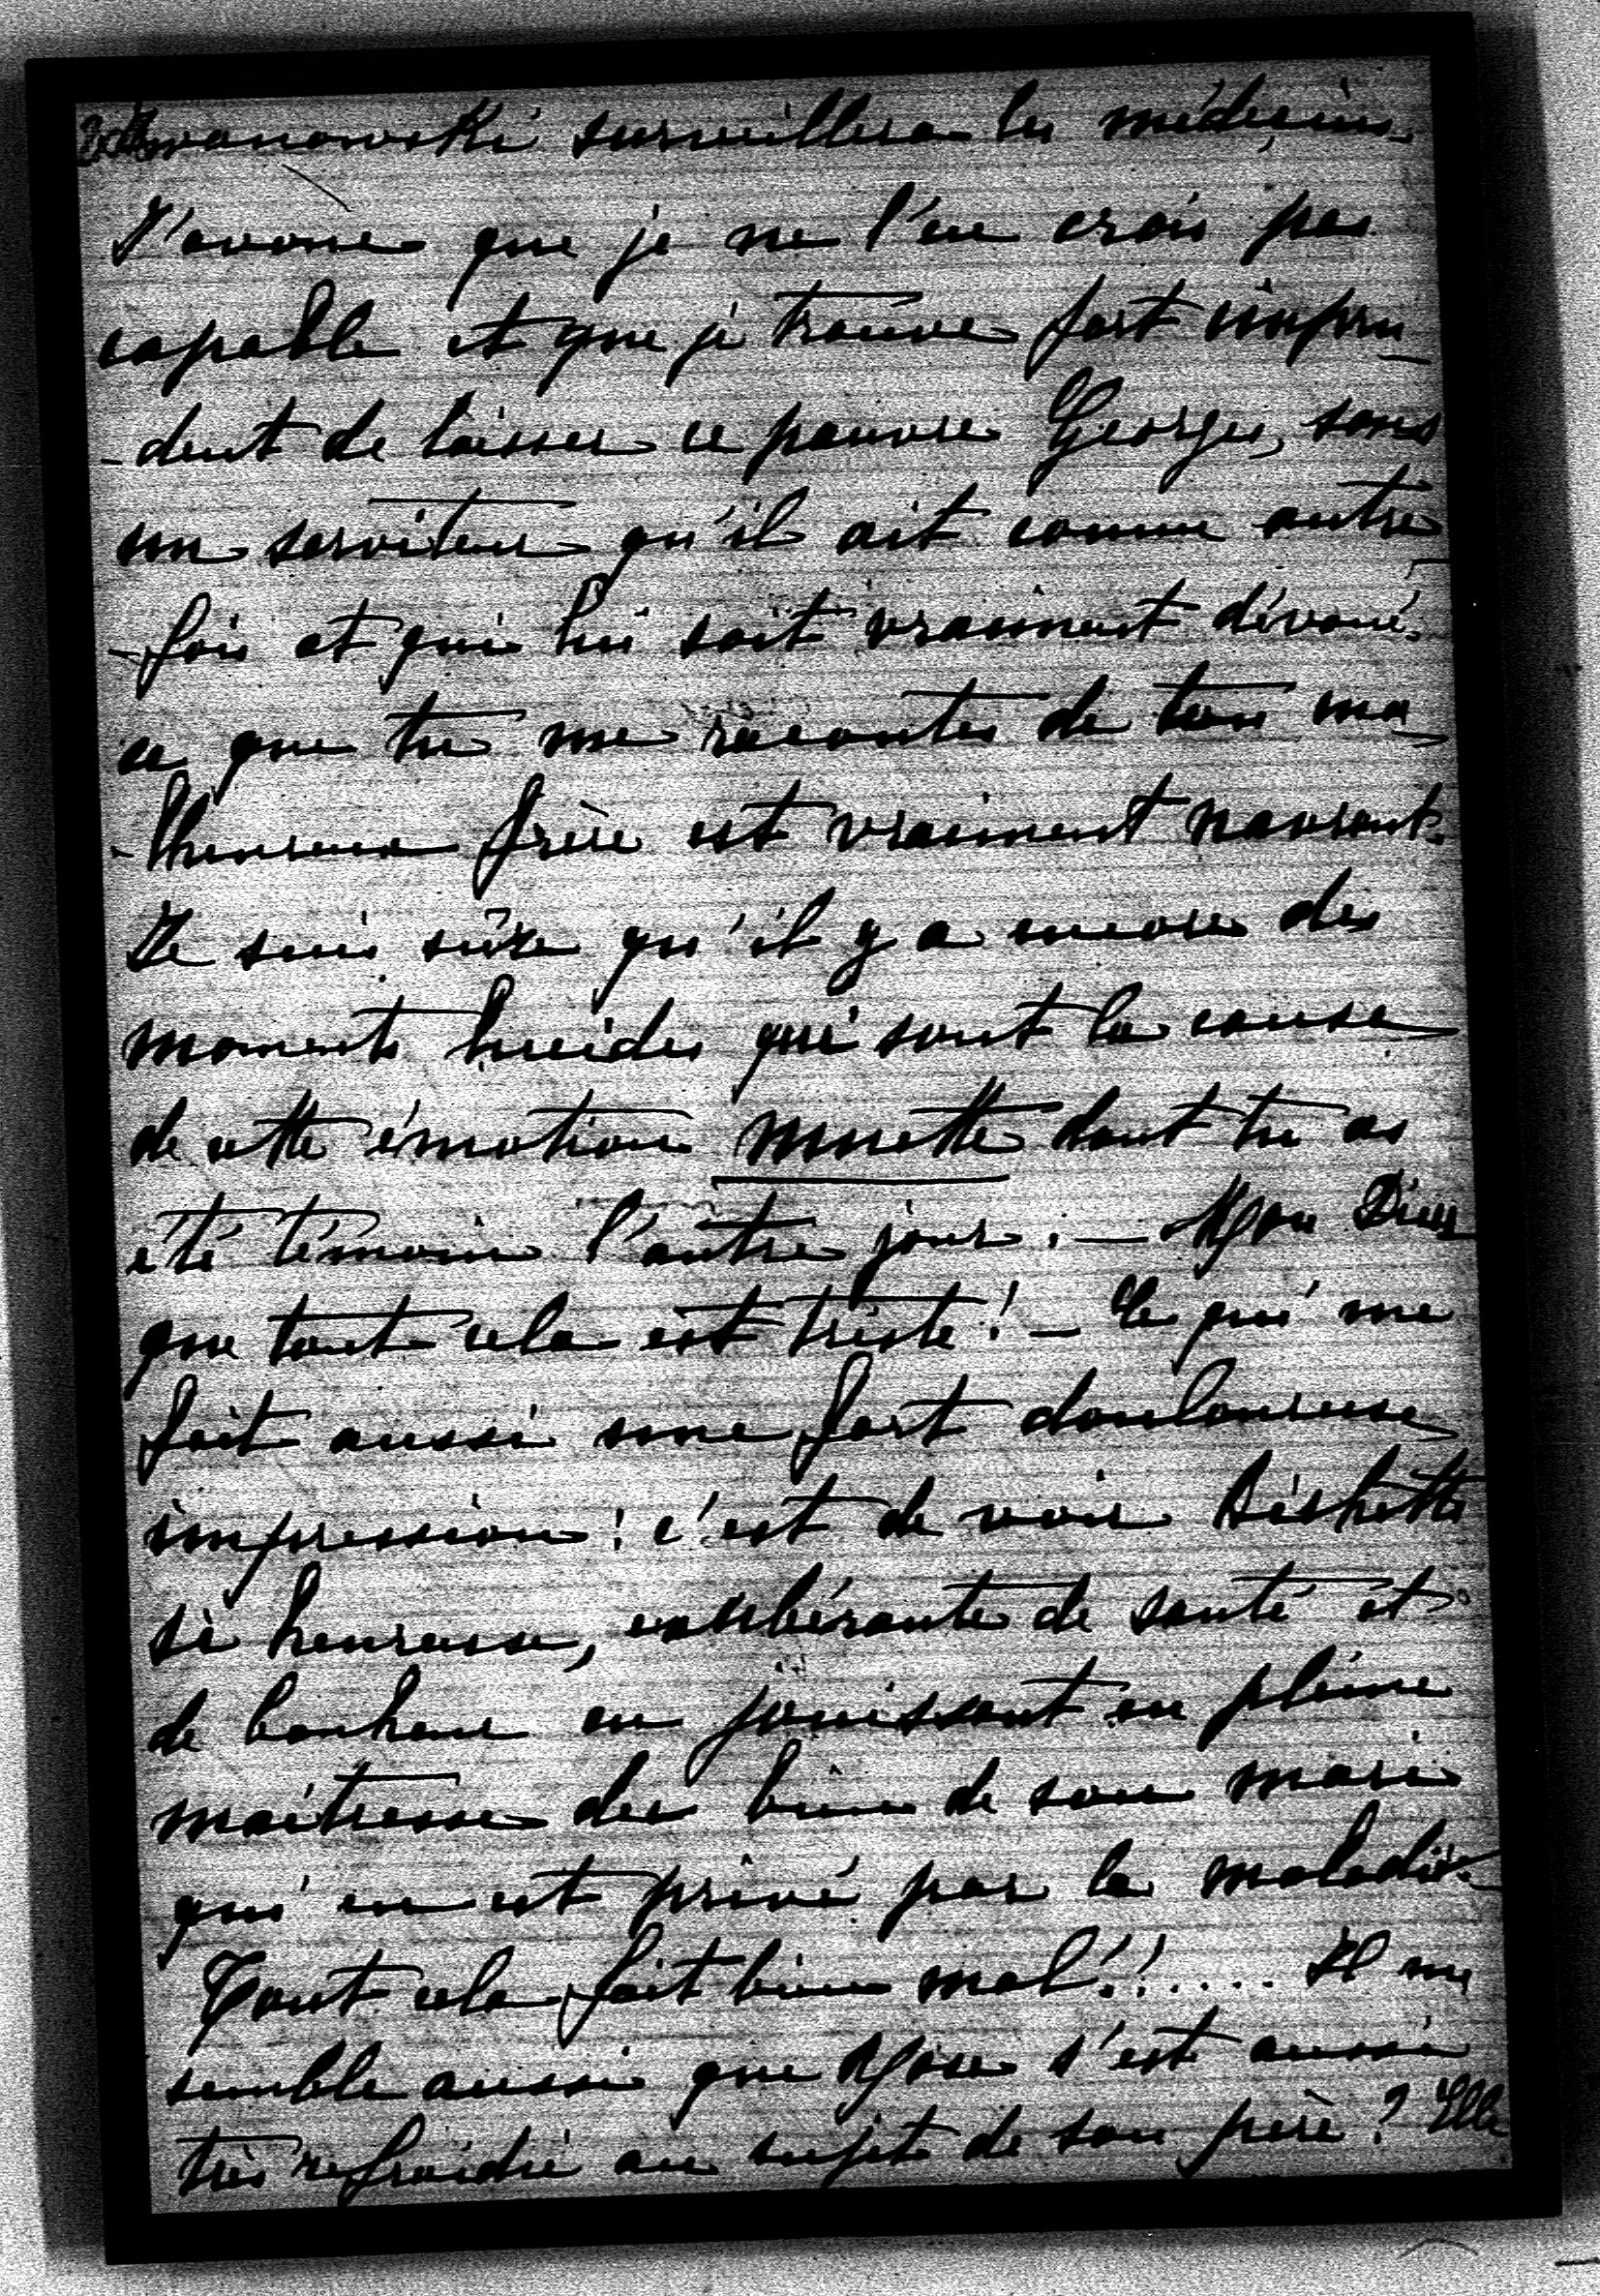 surveillera les médecins.
J'avoue que je ne l'en crois pas
capable et que je trouve fort impru-
-dent de laisser ce pauvre Georges, sans
un serviteur qu'il ait comme autre-
-fois et qui lui soit vraiment dévoué.
ce que tu me racontes de ton ma-
-lheureux frère est vraiment navrant.
Je suis sûre qu'il y a encore des
moments lucides qui sont la cause
de cette émotion muette dont tu as
été témoin l'autre jour. — Mon Dieu
que tout cela est triste! — Ce qui me
fait aussi une fort douloureuse
impression: c'est de voir Bishette
si heureuse, exubérante de santé et
de bonheur en jouissant en pleine
maîtresse des biens de son mari
qui en est privé par la maladie.
Tout cela fait bien mal!!.... Il me
semble aussi que s'est aussi
très refroidie au sujet de son père? Elle